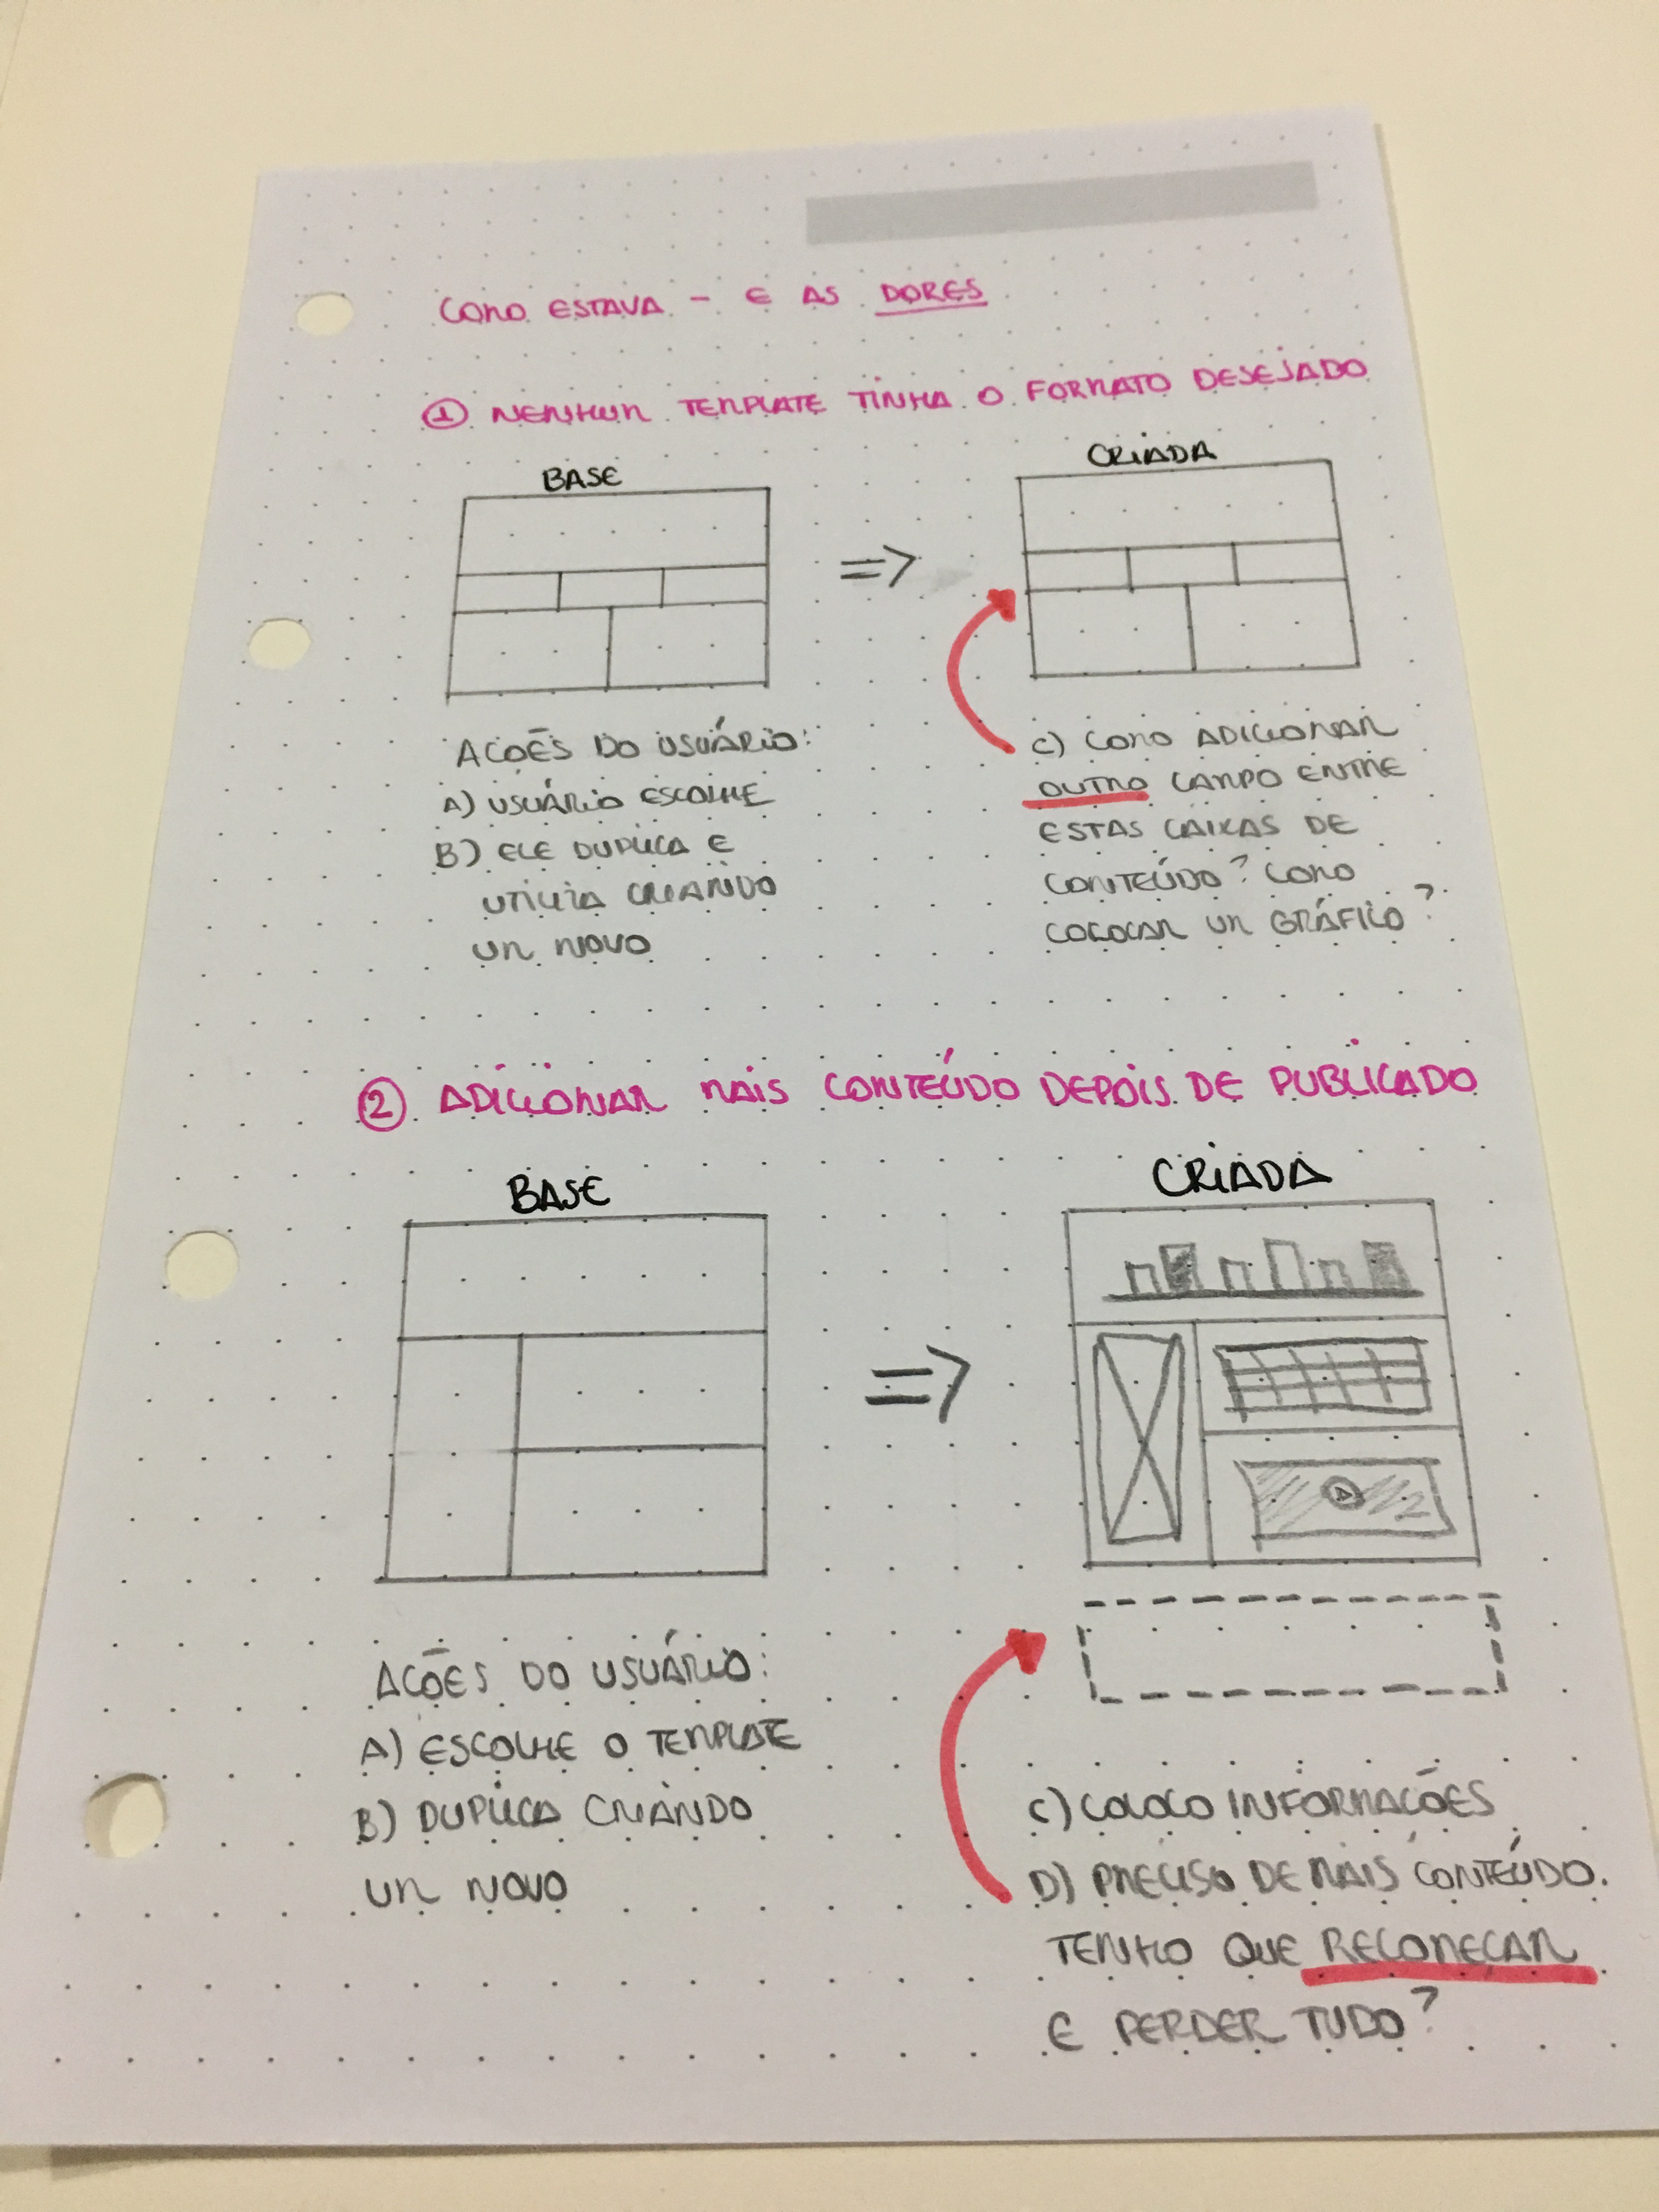 COMO ESTAVA - E AS DORES
① NENHUM TEMPLATE TINHA O FORMATO DESEJADO
BASE
CRIADA
=>
AÇOẼS DO USUÁRIO:
A) USUÁRIO ESCOLHE
B) ELE DUPLICA E
UTILIZA CRIANDO
UM NOVO
C) COMO ADICIONAR
OUTRO CAMPO ENTRE
ESTAS CAIXAS DE
CONTEÚDO? COMO
COLOCAR UM GRÁFICO?
② ADICIONAR MAIS CONTEÚDO DEPOIS DE PUBLICADO
BASE
CRIADA
=>
AÇÕES DO USUÁRIO:
A) ESCOLHE O TEMPLATE
B) DUPLICA CRIANDO
UM NOVO
C) COLOCO INFORMAÇÕES
D) PRECISO DE MAIS CONTEÚDO.
TENHO QUE RECOMEÇAR
E PERDER TUDO?